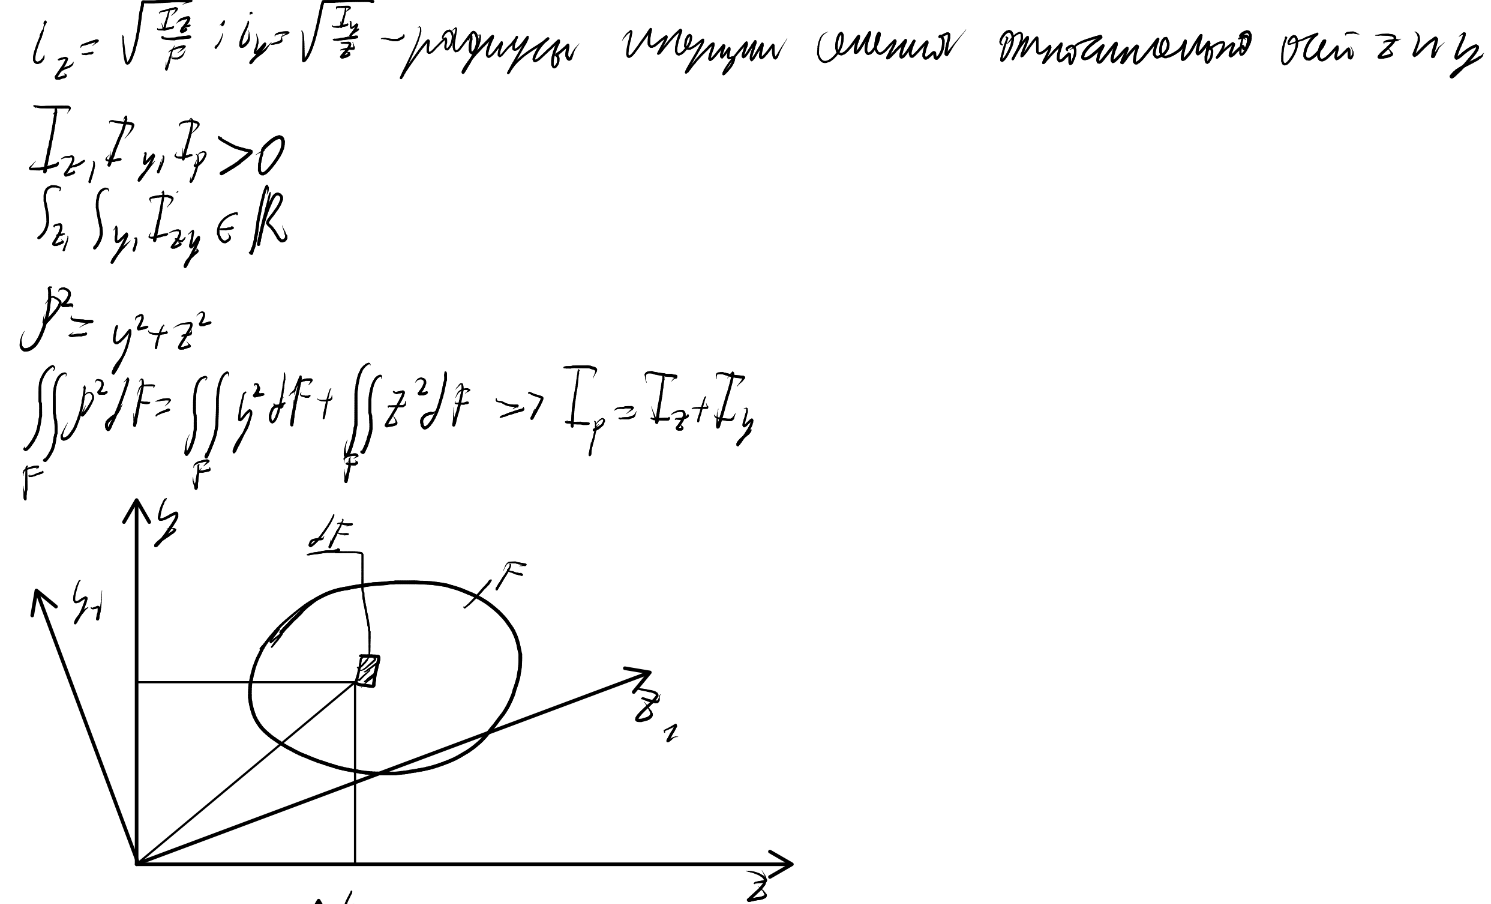 i_z = √(I_z/F) ; i_y = √(I_y/z) – радиусы инерции сечения относительно осей z и y
I_z, I_y, I_p > 0
S_z, S_y, I_zy ∈ ℝ
ρ² = y² + z²
∬_F ρ² dF = ∬_F y² dF + ∬_F z² dF => I_p = I_z + I_y
y
dF
F
y₁
z₁
z